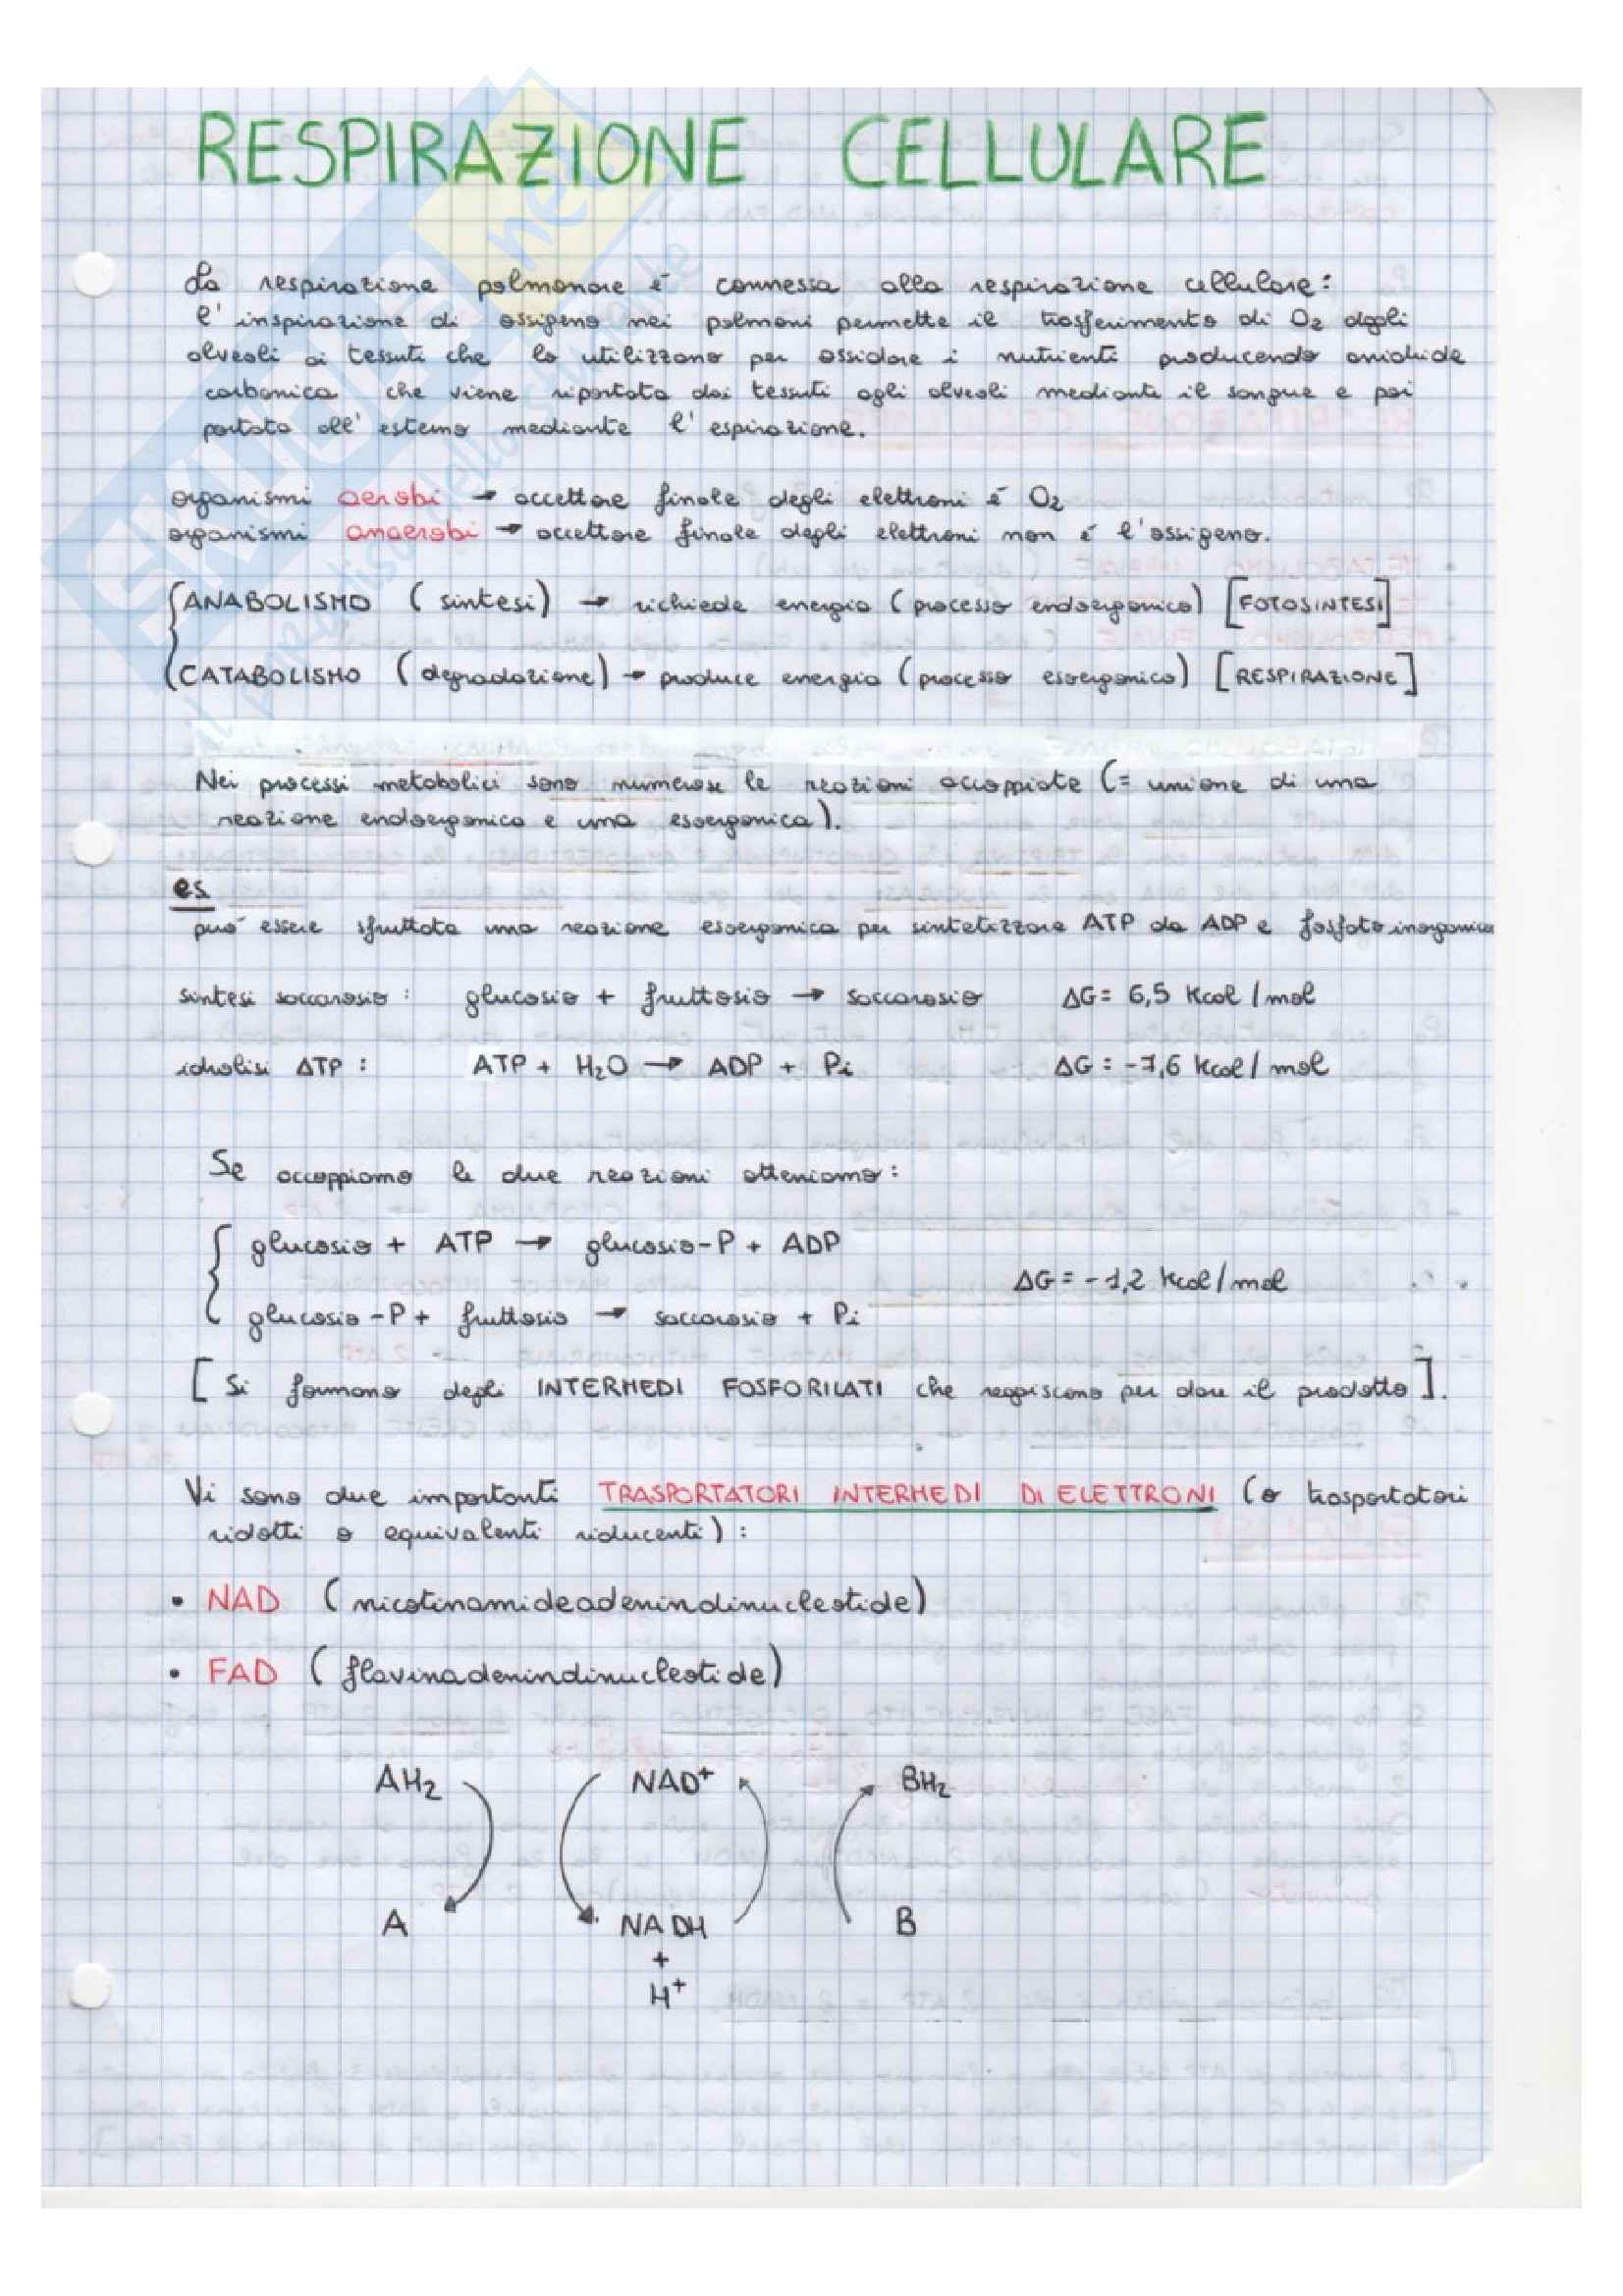 RESPIRAZIONE CELLULARE
La respirazione polmonare è connessa alla respirazione cellulare:
l'inspirazione di ossigeno nei polmoni permette il trasferimento di O2 dagli
alveoli ai tessuti che lo utilizzano per ossidare i nutrienti producendo anidride
carbonica che viene riportata dai tessuti agli alveoli mediante il sangue e poi
portata all'esterno mediante l'espirazione.
organismi aerobi → accettore finale degli elettroni è O2
organismi anaerobi → accettore finale degli elettroni non è l'ossigeno.
ANABOLISMO (sintesi) → richiede energia (processo endoergonico) [FOTOSINTESI]
CATABOLISMO (degradazione) → produce energia (processo esoergonico) [RESPIRAZIONE]
Nei processi metabolici sono numerose le reazioni accoppiate (= unione di una
reazione endoergonica e una esoergonica).
es
può essere sfruttata una reazione esoergonica per sintetizzare ATP da ADP e fosfato inorganico
sintesi saccarosio: glucosio + fruttosio → saccarosio ΔG = 6,5 Kcal/mol
idrolisi ATP: ATP + H2O → ADP + Pi ΔG = -7,6 Kcal/mol
Se accoppiamo le due reazioni otteniamo:
glucosio + ATP → glucosio-P + ADP
ΔG = -1,2 Kcal/mol
glucosio-P + fruttosio → saccarosio + Pi
[Si formano degli INTERMEDI FOSFORILATI che reagiscono per dare il prodotto].
Vi sono due importanti TRASPORTATORI INTERMEDI DI ELETTRONI (o trasportatori
ridotti o equivalenti riducenti):
• NAD (nicotinamideadenindinucleotide)
• FAD (flavinadenindinucleotide)
AH2 NAD+ BH2
A NADH B
+
H+
SKUOLA.net
il paradiso dello studente